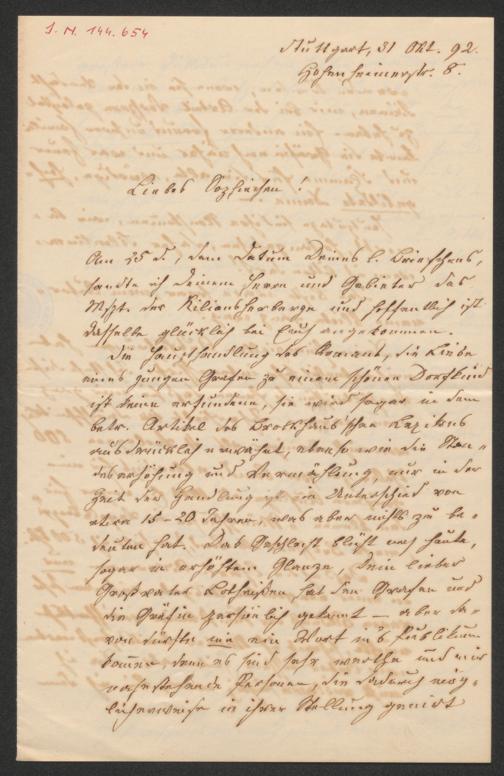 J. N. 144.654
Stuttgart, 31 Okt. 92.
Hohenheimerstr. 8.
Liebes Sophiechen!
Am 25 d., dem Datum Deines l. Briefchens,
sandte ich Deinem Herrn und Gebieter das
Mspt. der Kiliansherberge und hoffentlich ist
dasselbe glücklich bei Euch angekommen.
Die Haupthandlung des Romans, die Liebe
eines jungen Grafen zu einem schönen Dorfkind
ist keine erfundene, sie wird sogar in dem
betr. Artikel des Brockhaus'schen Lexikons
ausdrücklich erwähnt, ebenso wie die Stan-
deserhöhung und Vermählung, nur in der
Zeit der Handlung ist ein Unterschied von
etwa 15-20 Jahren, was aber nichts zu be-
deuten hat. Das Geschlecht blüht noch heute,
sogar in erhöhtem Glanze, Dein lieber
Großvater hat den Grafen und
die Gräfin persönlich gekannt — aber da-
von dürfte nie ein Wort in's Publikum
kommen, denn es sind sehr werthe und mir
nahestehende Personen, die dadurch mög-
licherweise in ihrer Stellung genirt